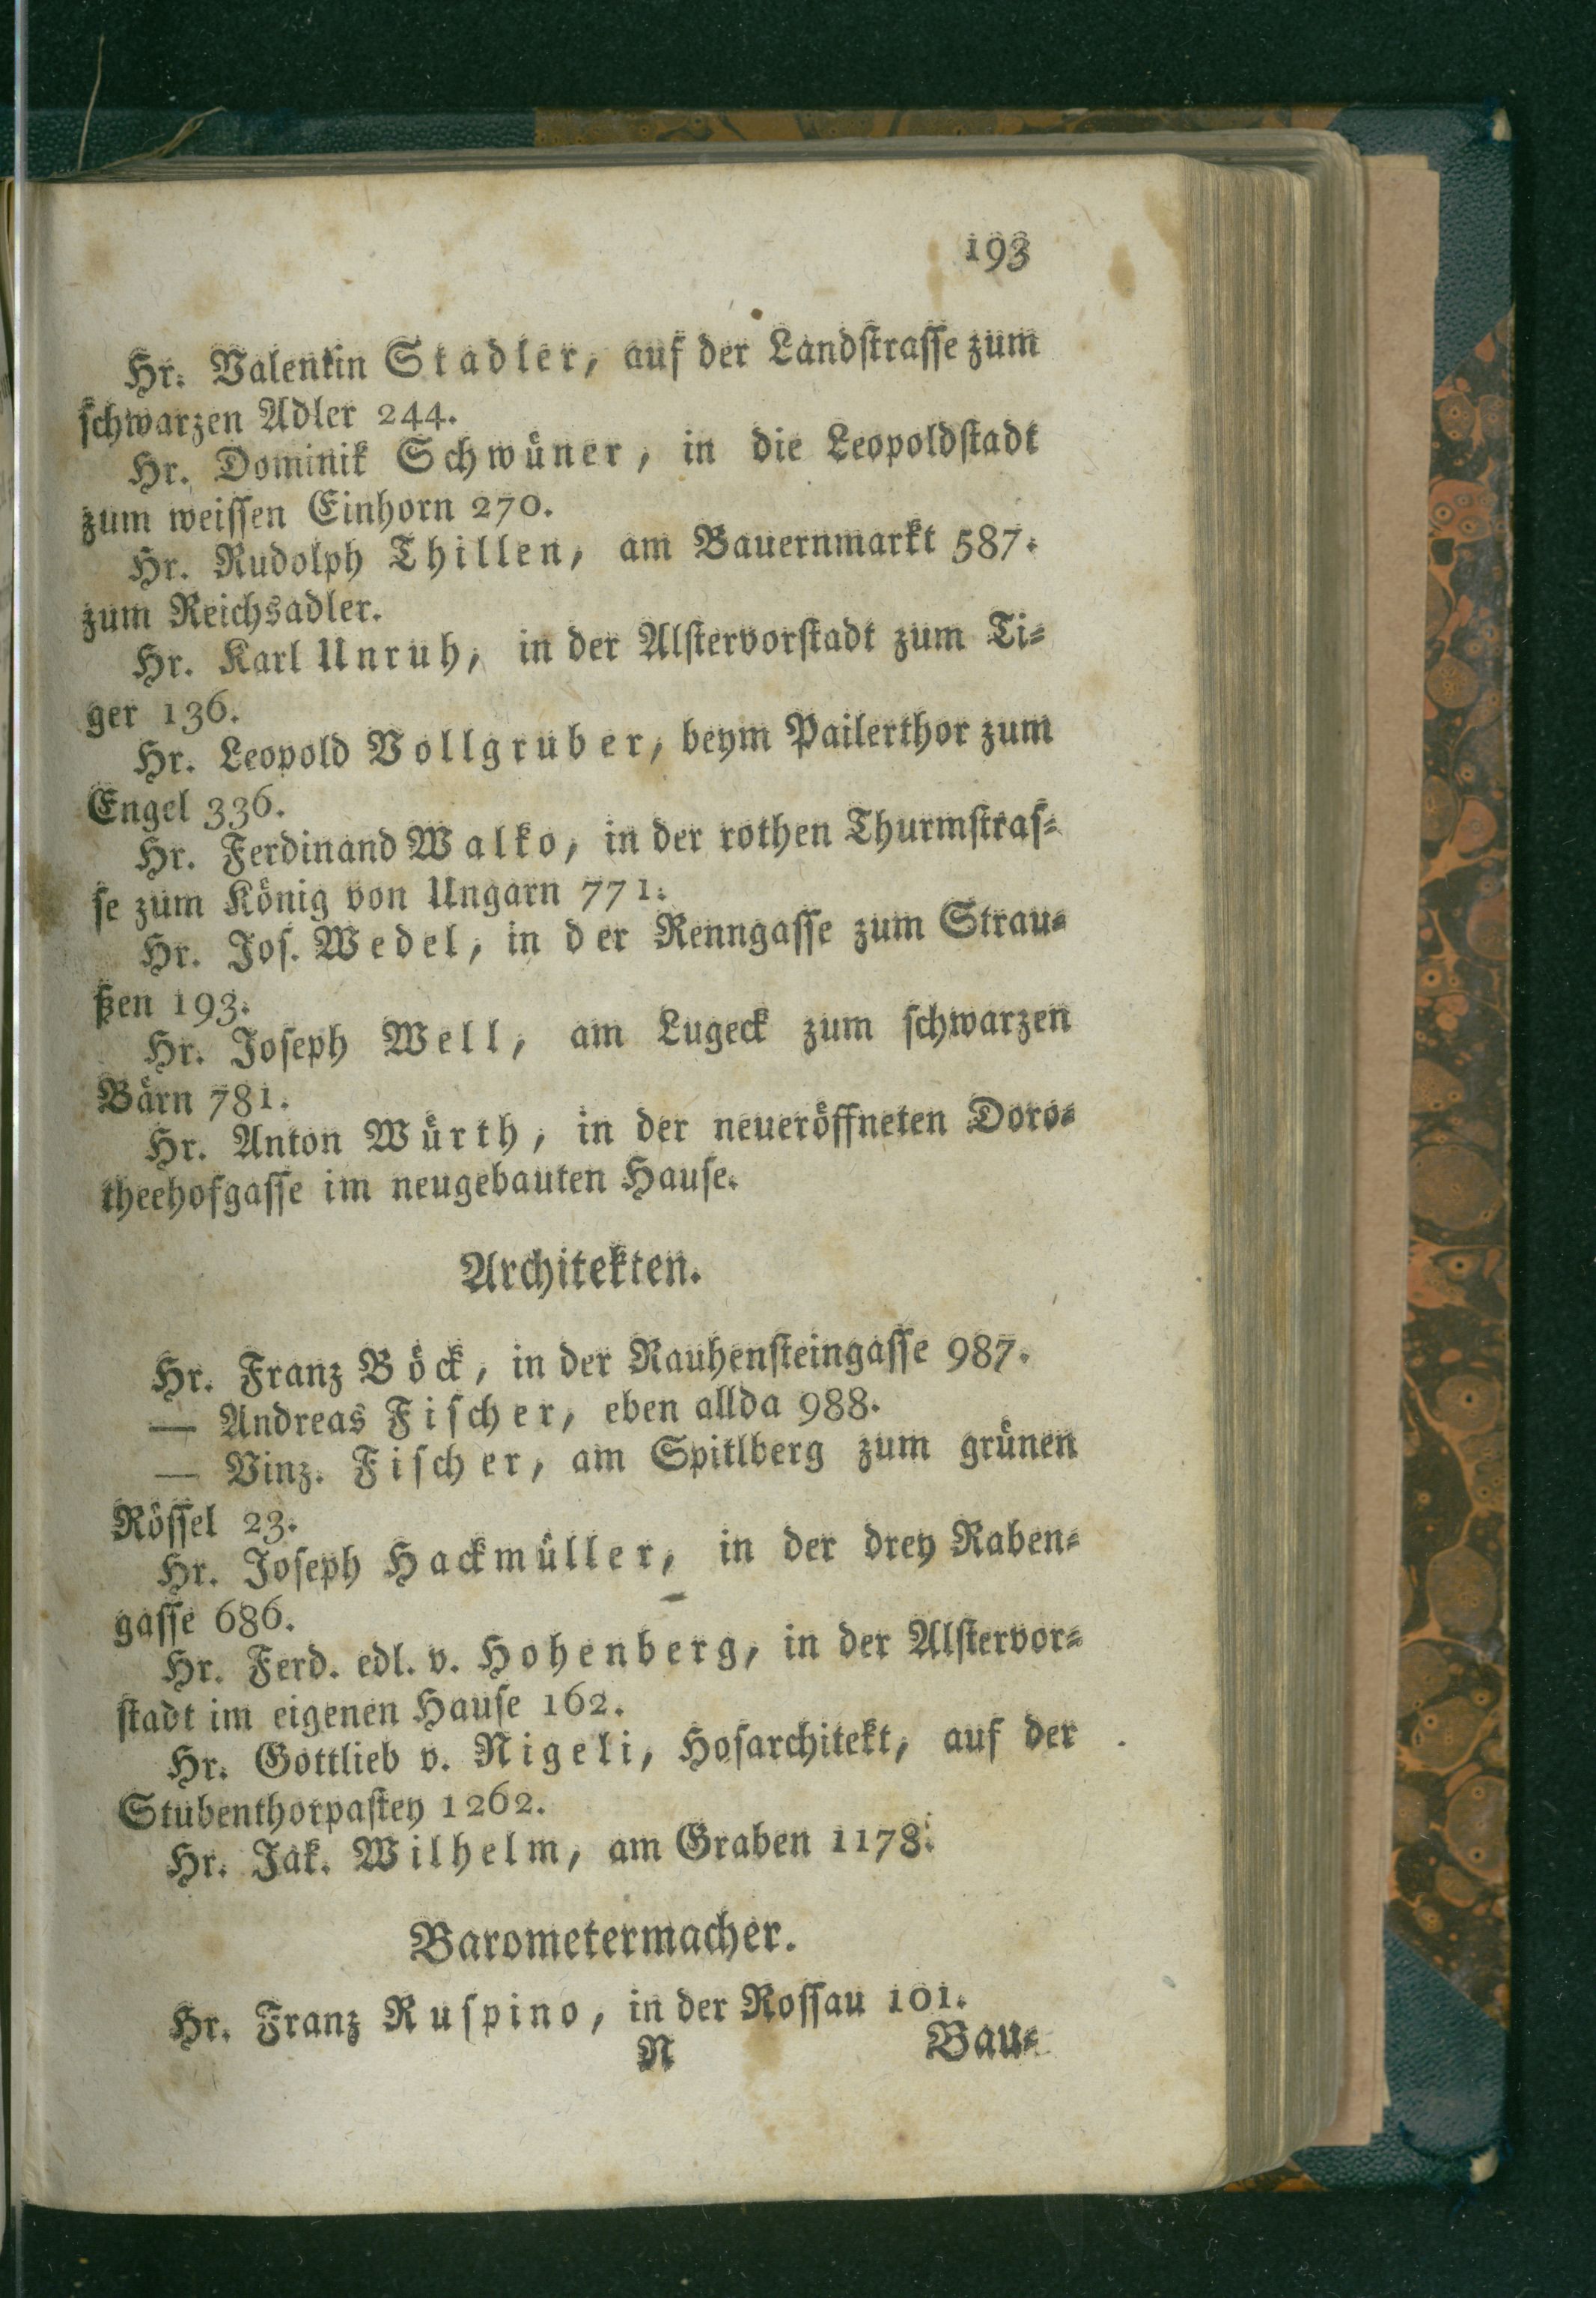 193
Hr. Valentin Stadler, auf der Landstrasse zum
schwarzen Adler 244.
Hr. Dominik Schwüner, in die Leopoldstadt
zum weissen Einhorn 270.
Hr. Rudolph Thillen, am Bauernmarkt 587.
zum Reichsadler.
Hr. Karl Unruh, in der Alstervorstadt zum Ti-
ger 136.
Hr. Leopold Vollgruber, beym Pailerthor zum
Engel 336.
Hr. Ferdinand Walko, in der rothen Thurmstras-
se zum König von Ungarn 771.
Hr. Jos. Wedel, in der Renngasse zum Strau-
ßen 193.
Hr. Joseph Well, am Lugeck zum schwarzen
Bärn 781.
Hr. Anton Würth, in der neueröffneten Doro-
theehofgasse im neugebauten Hause.
Architekten.
Hr. Franz Böck, in der Rauhensteingasse 987.
— Andreas Fischer, eben allda 988.
— Vinz. Fischer, am Spitlberg zum grünen
Rössel 23.
Hr. Joseph Hackmüller, in der drey Raben-
gasse 686.
Hr. Ferd. edl. v. Hohenberg, in der Alstervor-
stadt im eigenen Hause 162.
Hr. Gottlieb v. Nigeli, Hofarchitekt, auf der
Stubenthorpastey 1262.
Hr. Jak. Wilhelm, am Graben 1178.
Barometermacher.
Hr. Franz Ruspino, in der Rossau 101.
N Bau-